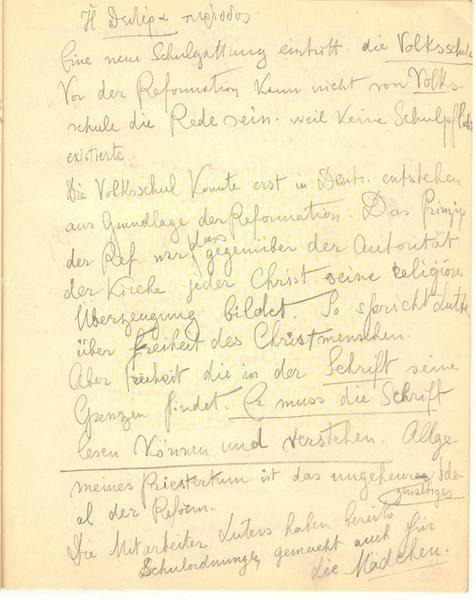 Η Δευτέρα περίοδος.
Eine neue Schulgattung eintritt. die Volksschule
Vor der Reformation kann nicht von Volks-
schule die Rede sein. weil keine Schulpflicht
existierte
Die Volksschul konnte erst in Deuts. entstehen
aus Grundlage der Reformation. Das Prinzip
der Ref. war das gegenüber der Autorität
der Kirche jeder Christ seine religiöse
Uberzeugung bildet. So spricht Luther
über Freiheit des Christmenschen.
Aber Freiheit die in der Schrift seine
Grenzen findet. Er muss die Schrift
lesen können und verstehen. Allge-
meines Priestertum ist das ungeheures Ide-
gewaltiges
al der Reform.
Die Mitarbeiter Luters haben bereits
Schulordnungen gemacht auch für
die Mädchen.